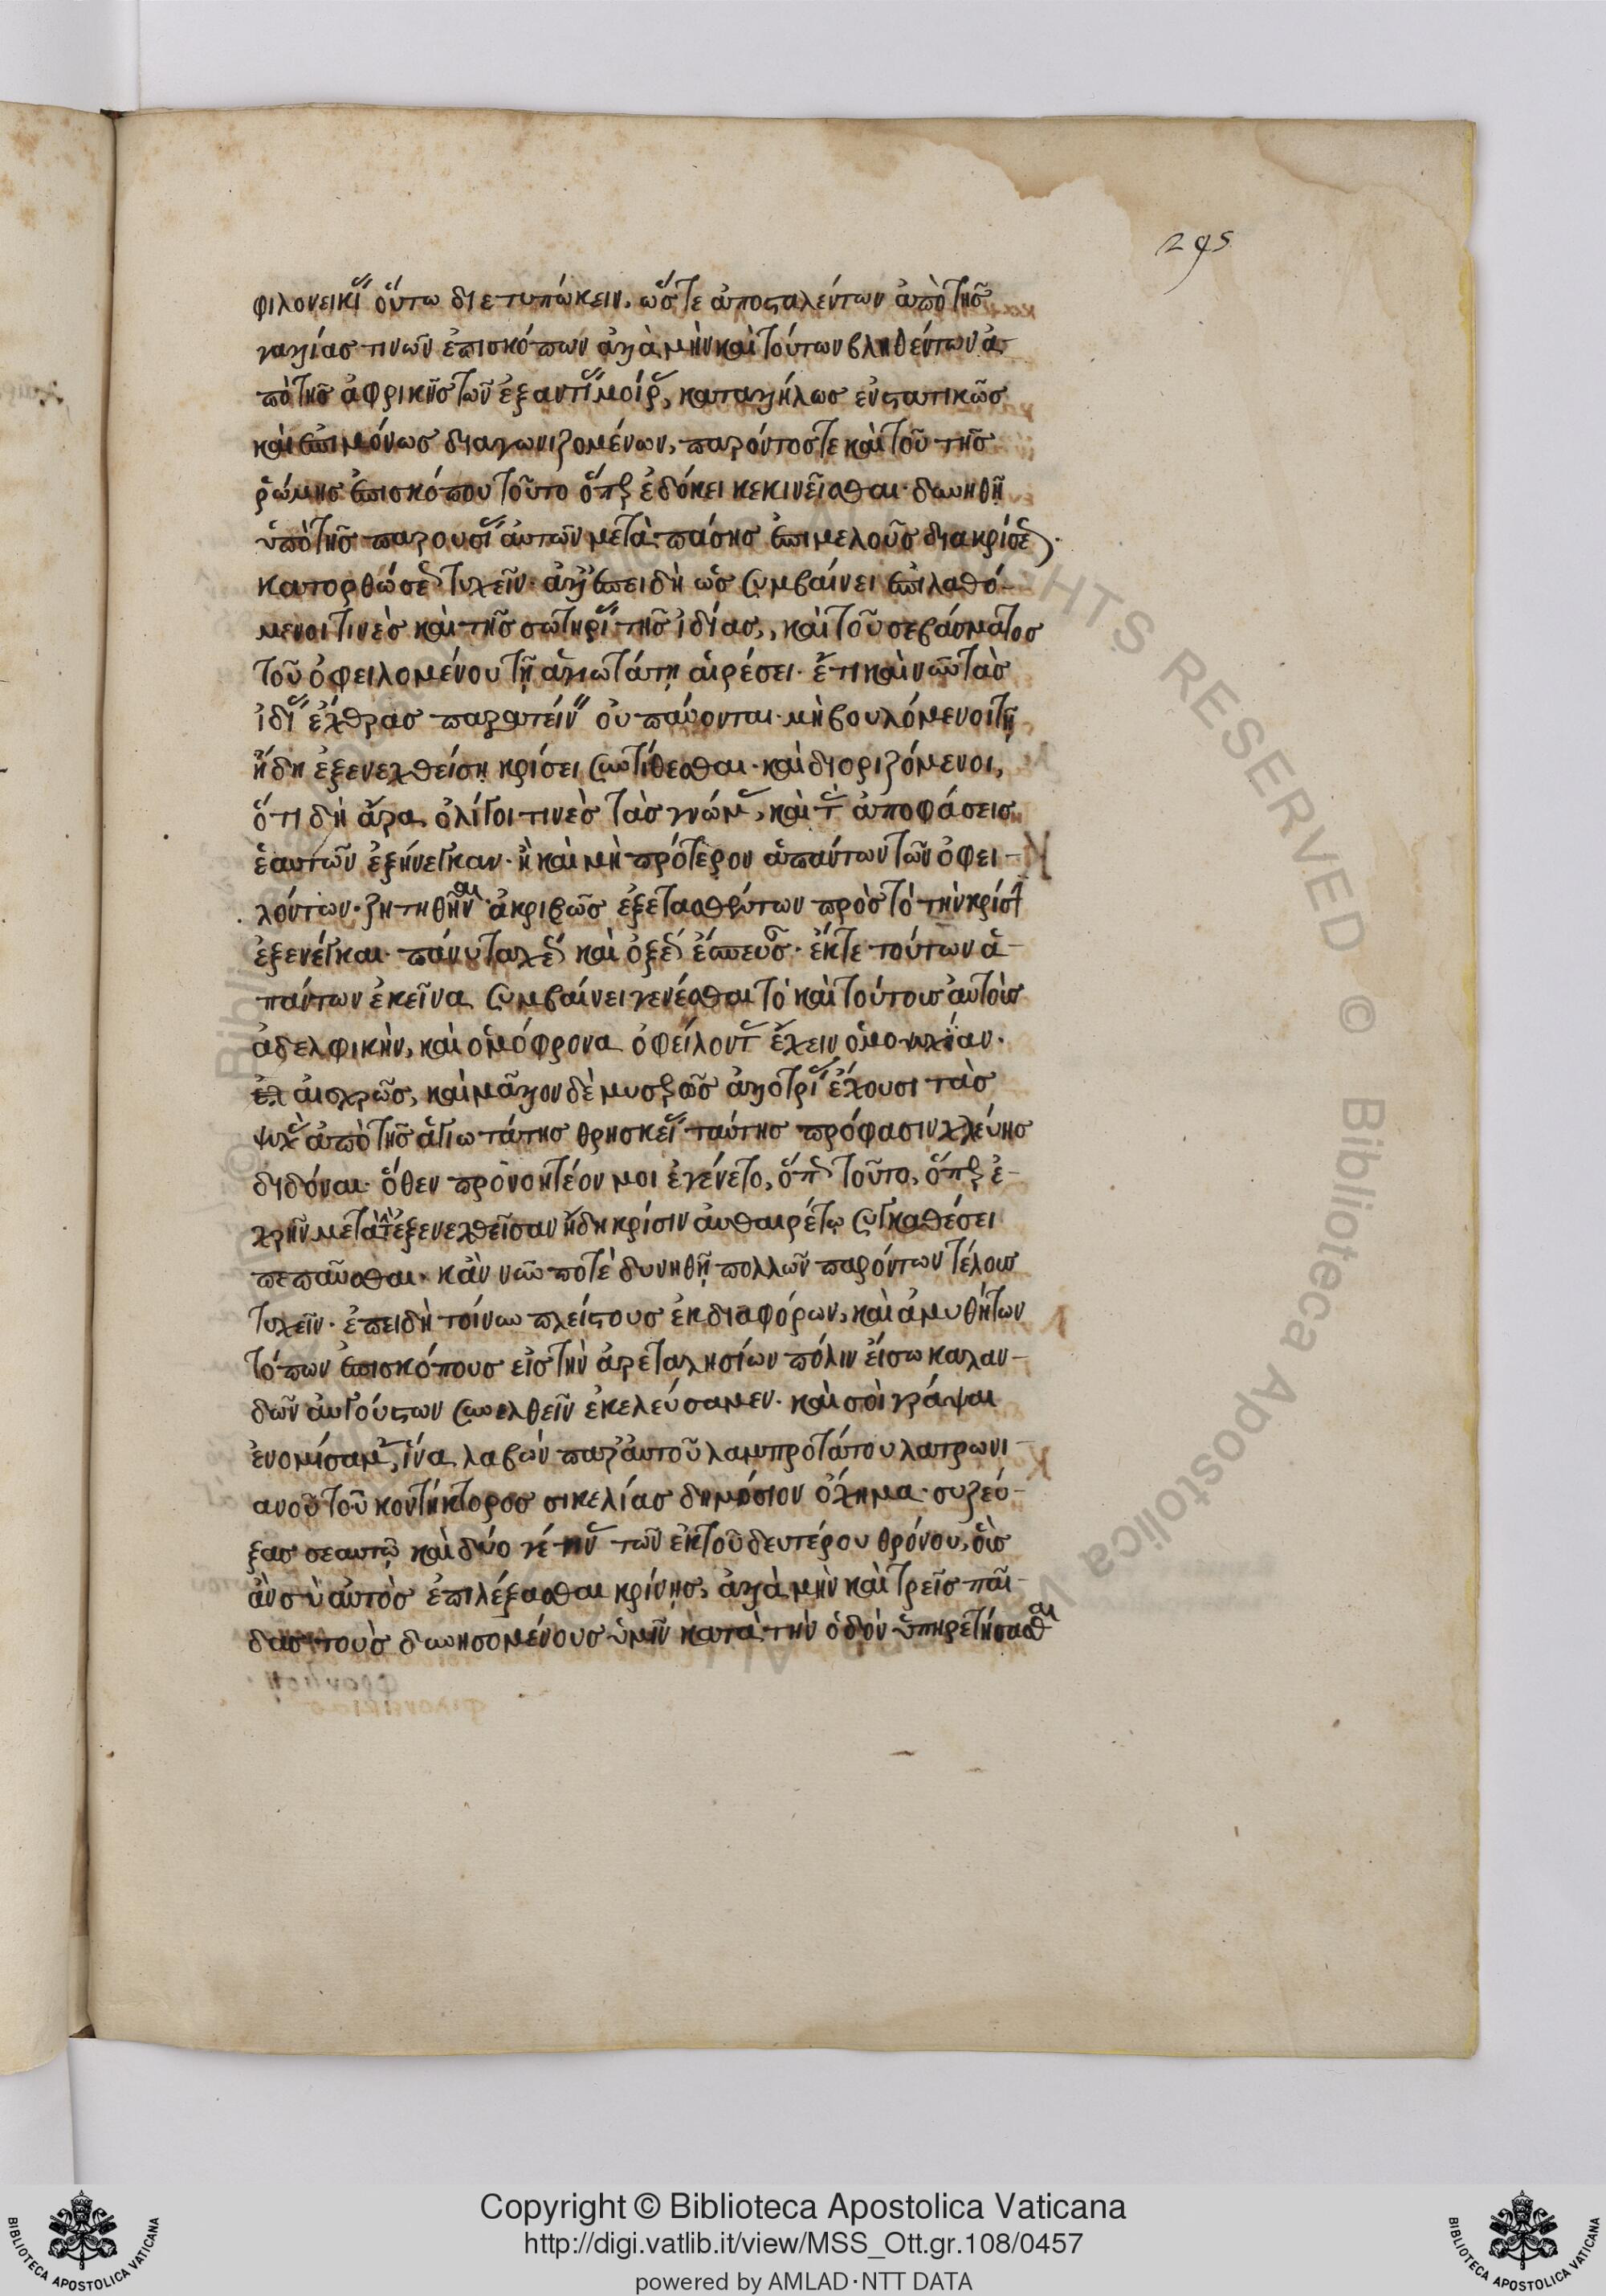 295
φιλονεικί οὕτω διετυπώκειν, ὥστε ἀποσταλέντων ἀπὸ τῆς
γαλλίας τινῶν ἐπισκόπων ἀλλὰ μὴν καὶ τούτων βληθέντων ἀ
πὸ τῆς ἀφρικῆς τῶν ἐξ αντι μοίρ, καταλλήλως ἐνστατικῶς
καὶ ἐπιμόνως διαγωνιζομένων, παρόντος τε καὶ τοῦ τῆς
ῥώμης ἐπισκόπου τοῦτο ὅπερ ἐδόκει κεκινεῖσθαι· δυνηθῆ
ὑπὸ τῆς παρουσί αὐτῶν μετὰ πάσης ἐπιμελοῦς διακρίσε·
κατορθώσε τυχεῖν· ἀλλ' ἐπειδὴ ὡς συμβαίνει ἐπιλαθό-
μενοι τινὲς καὶ τῆς σωτηρί τῆς ἰδίας, καὶ τοῦ σεβάσματος
τοῦ ὀφειλομένου τῇ ἁγιωτάτῃ αἱρέσει· ἔτι καὶ νῦν τὰς
ἰδί ἔχθρας παρατείν οὐ παύονται· μὴ βουλόμενοι τῇ
ἤδη ἐξενεχθείσῃ κρίσει συντίθεσθαι· καὶ διοριζόμενοι,
ὅτι δὴ ἄρα ὀλίγοι τινὲς τὰς γνώμ, καὶ τ ἀποφάσεις
ἑαυτῶν ἐξήνεγκαν· ἢ καὶ μὴ πρότερον ἁπάντων τῶν ὀφει-
λόντων ζητηθῆναι ἀκριβῶς ἐξετασθέντων πρὸς τὸ τὴν κρίσ
ἐξενέγκαι· πάνυ ταχέ καὶ ὀξέ ἔσπευσ· ἔκ τε τούτων ἁ-
πάντων ἐκεῖνα συμβαίνει γενέσθαι τὸ καὶ τούτους αὐτοὺς
ἀδελφικὴν, καὶ ὁμόφρονα ὀφείλοντ ἔχειν ὁμοψυχίαν·
αἰσχρῶς, καὶ μᾶλλον δὲ μυσερῶς ἀλλοτρί ἔχουσι τὰς
ψυχ ἀπὸ τῆς ἁγιωτάτης θρησκεί ταύτης πρόφασιν χλεύης
διδόναι· ὅθεν προνοητέον μοι ἐγένετο, ὅπ τοῦτο, ὅπερ ἐ-
χρῆν μετὰ τ ἐξενεχθεῖσαν ἤδη κρίσιν αὐθαιρέτῳ συγκαθέσει
πεπαῦσθαι· κἂν νῦν ποτὲ δυνηθῇ πολλῶν παρόντων τέλους
τυχεῖν· ἐπειδὴ τοίνυν πλείστους ἐκ διαφόρων, καὶ ἀμυθήτων
τόπων ἐπισκόπους εἰς τὴν ἀρελατησίων πόλιν εἴσω καλαν-
δῶν αὐγούστων συνελθεῖν ἐκελεύσαμεν· καὶ σοὶ γράψαι
ἐνομίσαμ, ἵνα λαβὼν παρ' αὐτοῦ λαμπροτάτου λατρωνι-
ανοῦ τοῦ κοντήκτορος σικελίας δημόσιον ὄχημα· συζεύ-
ξας σεαυτῷ καὶ δύο γέ τιν τῶν ἐκ τοῦ δευτέρου θρόνου, οὓς
ἂν σὺ αὐτὸς ἐπιλέξασθαι κρίνῃς, ἀλλὰ μὴν καὶ τρεῖς παῖ-
δας τοὺς δυνησομένους ὑμῖν κατὰ τὴν ὁδὸν ὑπηρετήσασθαι
Copyright © Biblioteca Apostolica Vaticana
http://digi.vatlib.it/view/MSS_Ott.gr.108/0457
powered by AMLAD·NTT DATA